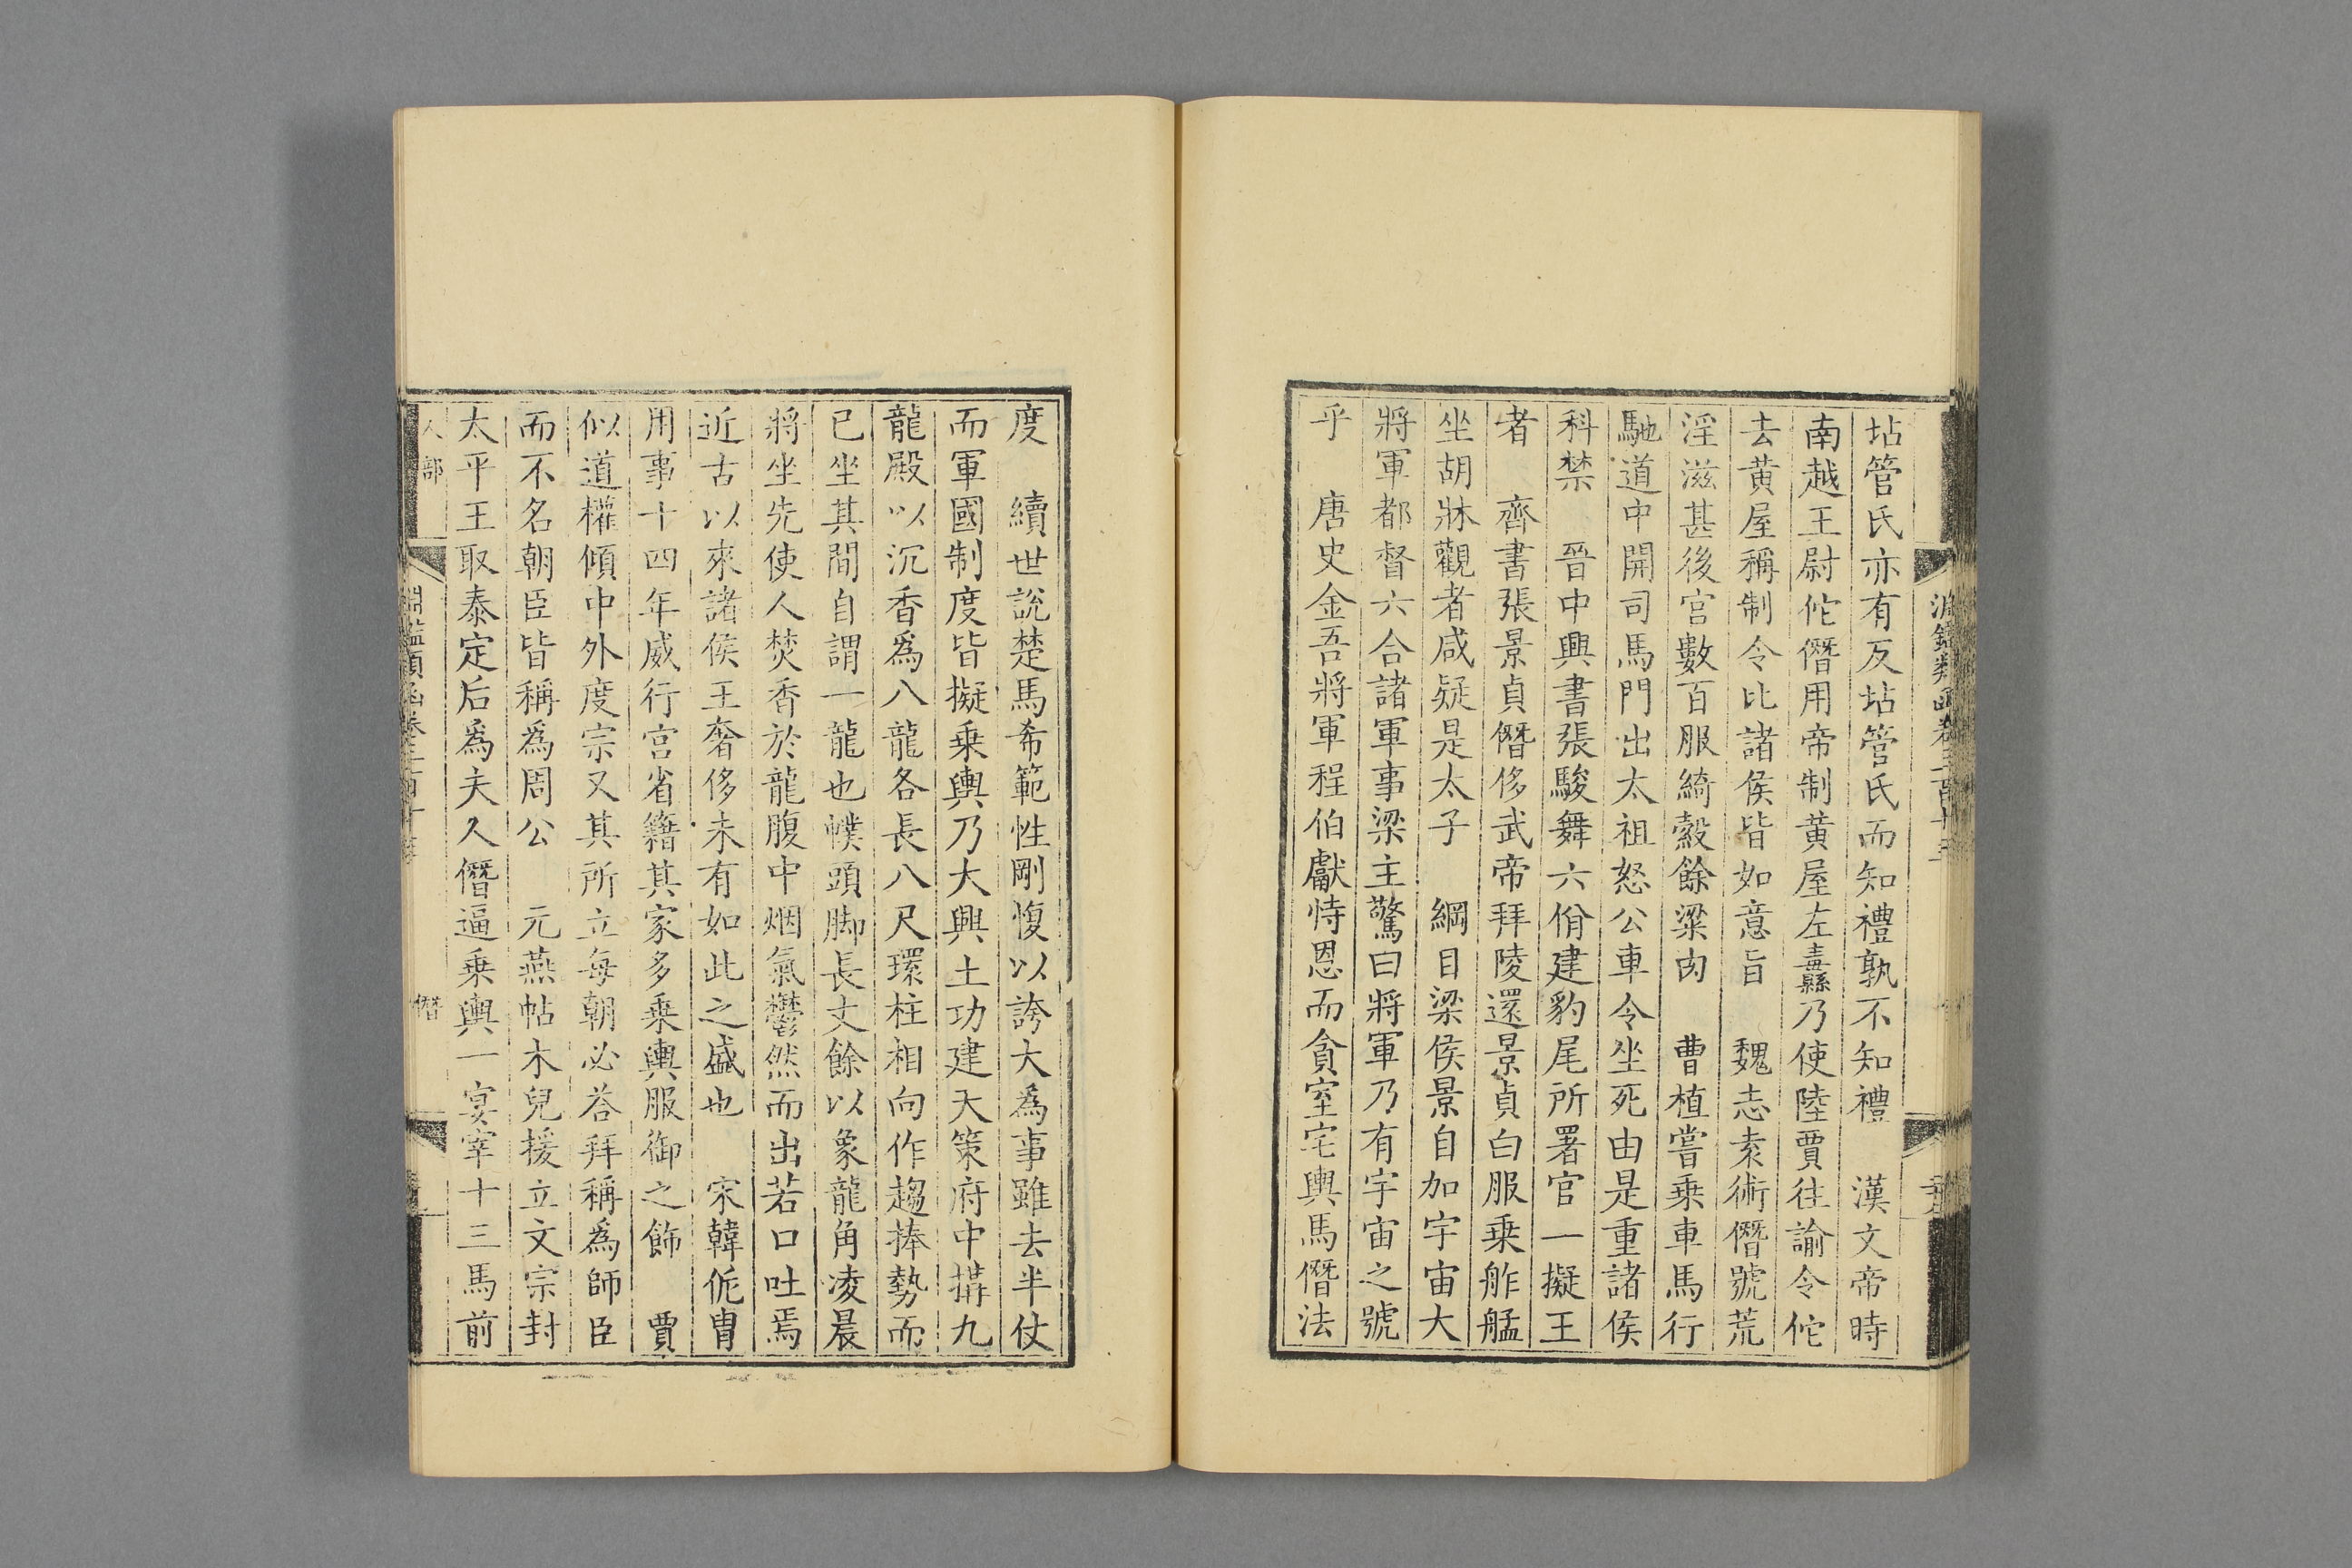 坫管氏亦有反坫管氏而知禮孰不知禮　漢文帝時
南越王尉佗僭用帝制黄屋左纛乃使陸賈往諭令佗
去黄屋稱制令比諸侯皆如意旨　魏志袁術僭號荒
淫滋甚後宫數百服綺縠餘粱肉　曹植嘗乗車馬行
馳道中開司馬門出太祖怒公車令坐死由是重諸侯
科禁　晉中興書張駿舞六佾建豹尾所署官一擬王
者　齊書張景貞僭侈武帝拜陵還景貞白服乗舴艋
坐胡牀觀者咸疑是太子　綱目梁侯景自加宇宙大
將軍都督六合諸軍事梁主驚曰將軍乃有宇宙之號
乎　唐史金吾將軍程伯獻恃恩而貪室宅輿馬僭法
度　續世說楚馬希範性剛愎以誇大爲事雖去半仗
而軍國制度皆擬乗輿乃大興土功建天策府中搆九
龍殿以沉香爲八龍各長八尺環柱相向作趨捧勢而
已坐其間自謂一龍也幞頭脚長丈餘以象龍角凌晨
將坐先使人焚香於龍腹中烟氣鬱然而出若口吐焉
近古以來諸侯王奢侈未有如此之盛也　宋韓侂胄
用事十四年威行宫省籍其家多乗輿服御之飾　賈
似道權傾中外度宗又其所立每朝必答拜稱爲師臣
而不名朝臣皆稱爲周公　元燕帖木兒援立文宗封
太平王取泰定后爲夫人僭逼乗輿一宴宰十三馬前
人部
僭